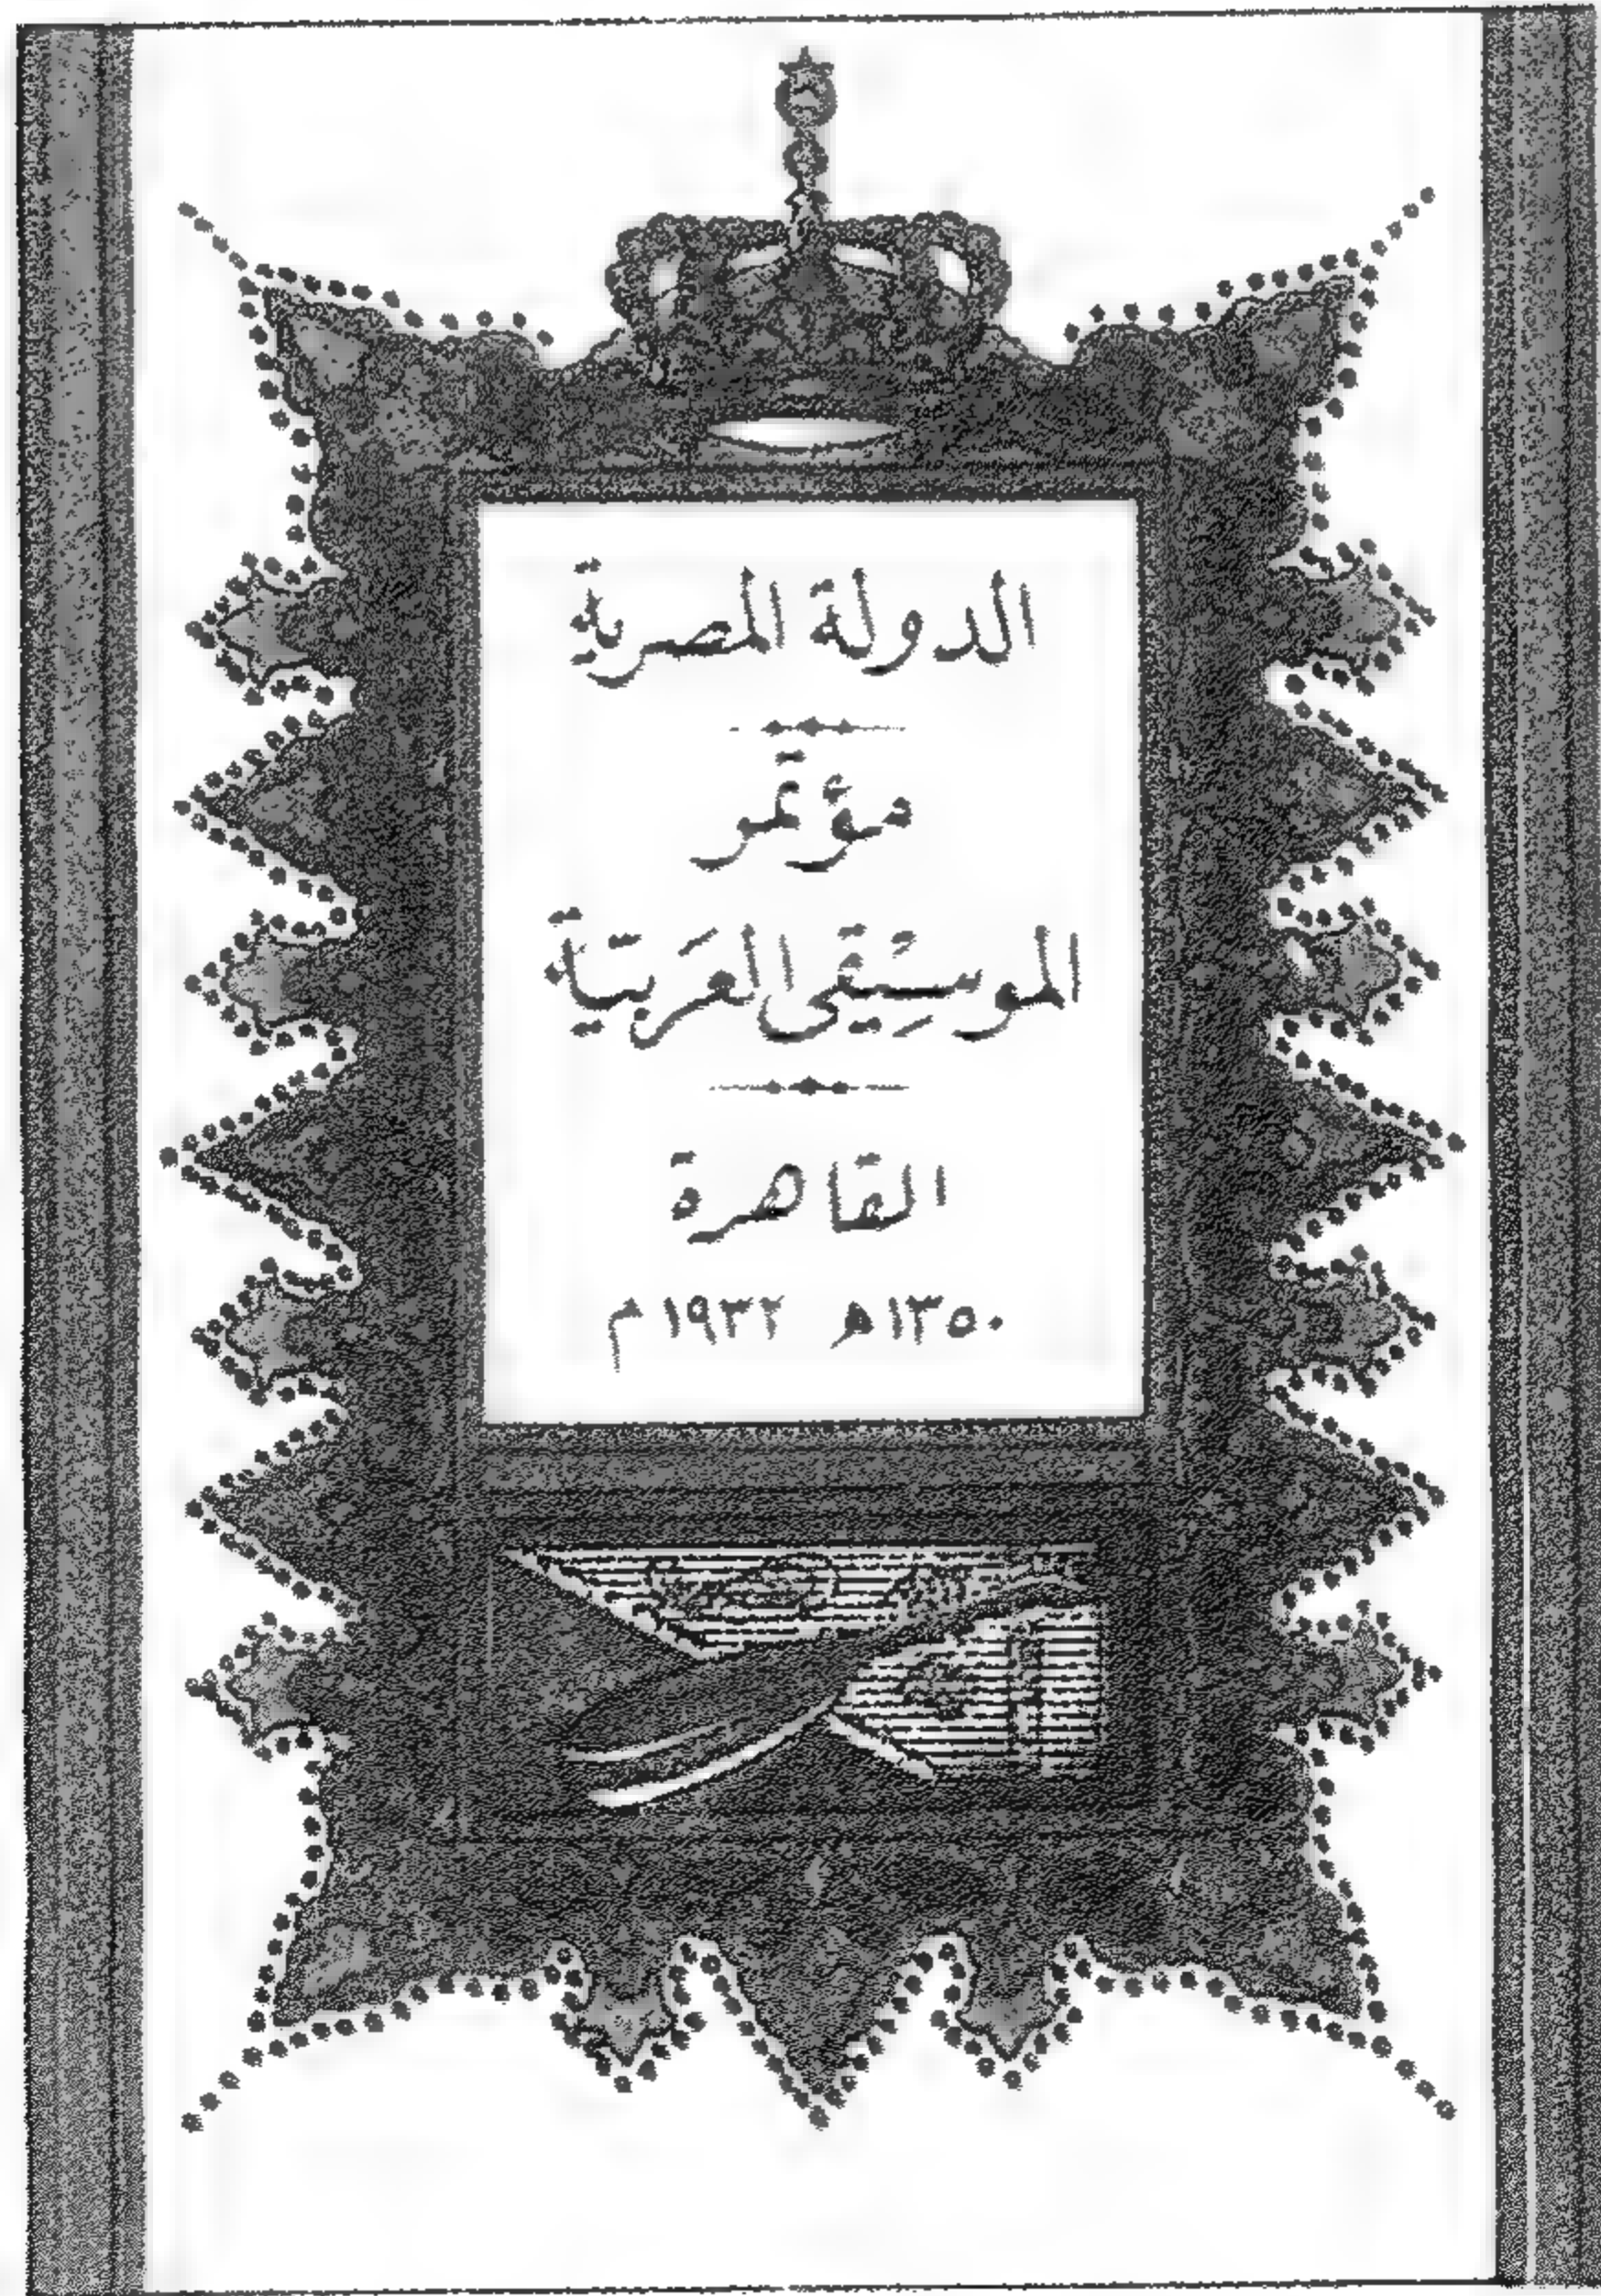 الدولة المصرية
مؤتمر
الموسِيْقى العَربيَّة
القاهرة
١٣٥٠ هـ ١٩٣٢ م